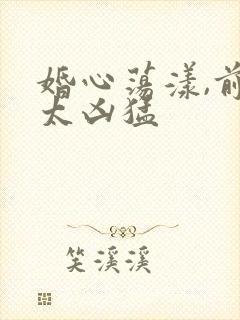 婚心荡漾,前
太凶猛
笑溪溪